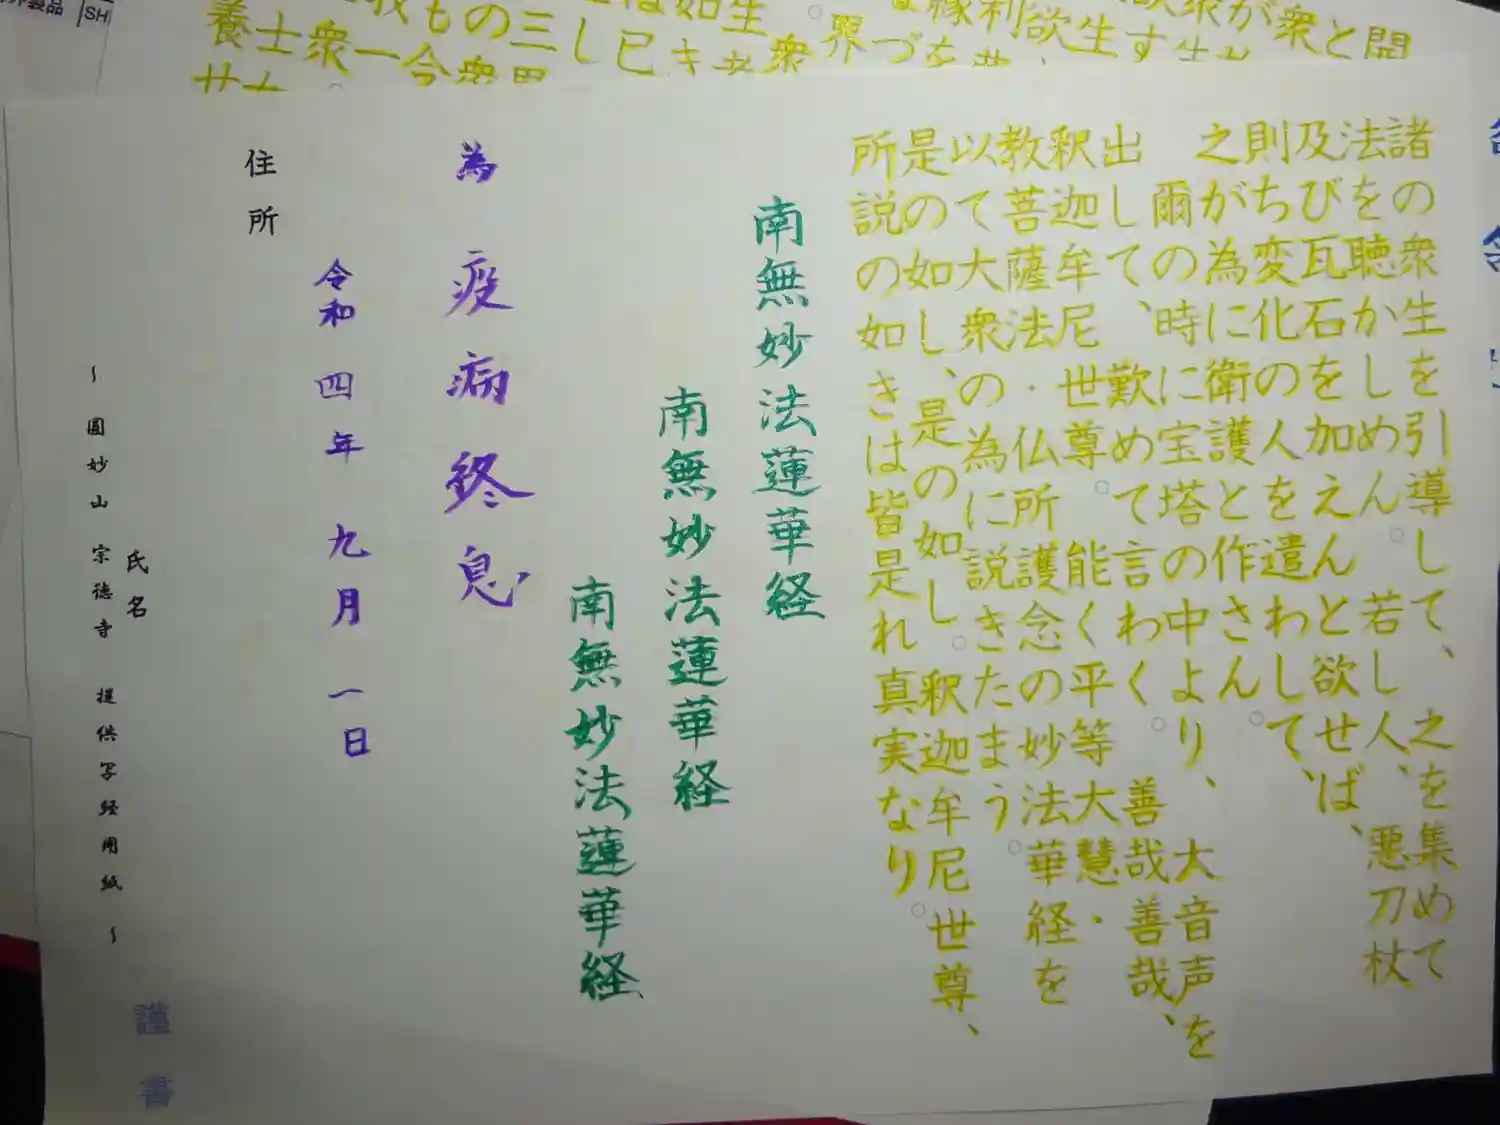 諸の衆生を引導して、之を集めて
法を聴かしめん。若し人、悪刀杖
及び瓦石を加えんと欲せば、
則ち変化の人を遣わして、
之が為に衛護と作さん。
爾の時に宝塔の中より、大音声を
出して、歎めて言わく、善哉善哉、
釈迦牟尼世尊。能く平等大慧・
教菩薩法・仏所護念の妙法華経を
以て大衆の為に説きたまう。
是の如し、是の如し。釈迦牟尼世尊、
所説の如きは皆是れ真実なり。
南無妙法蓮華経
南無妙法蓮華経
南無妙法蓮華経
為 疫病終息
令和四年 九月 一日
住所
氏名
~圓妙山 宗徳寺 提供写経用紙~
謹書
養士衆一今衆